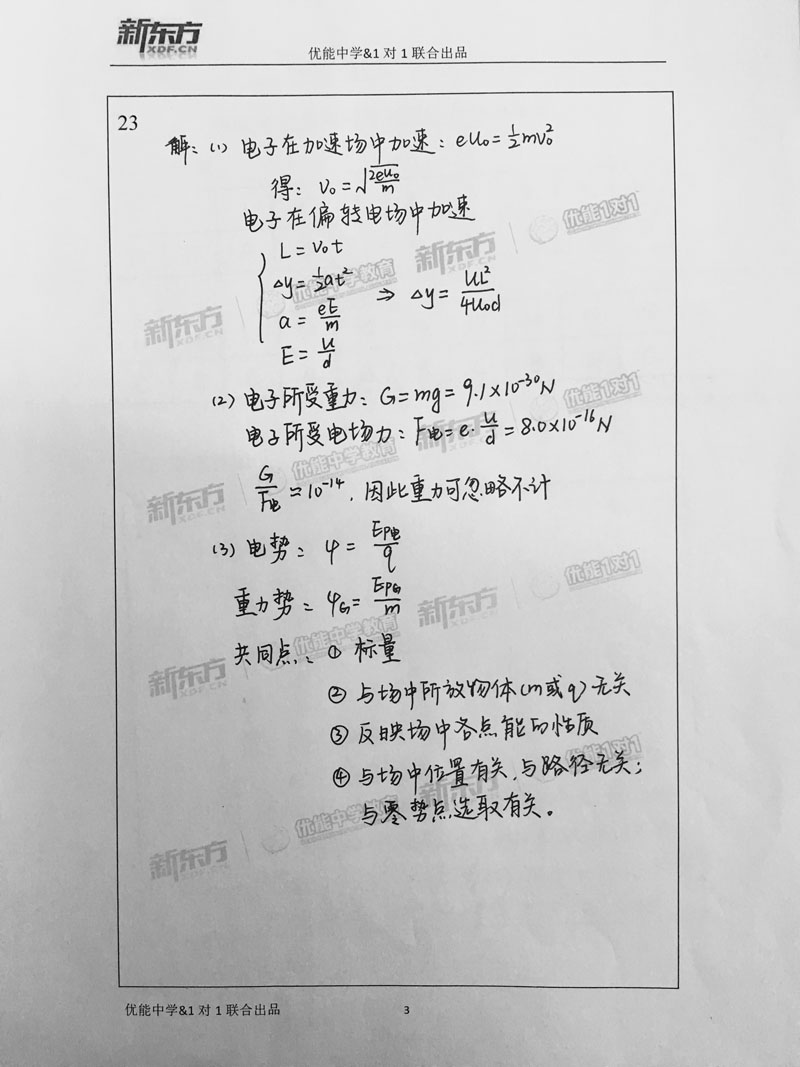 新东方
XDF.CN
优能中学&1 对 1 联合出品
23
解：(1) 电子在加速场中加速：eU₀=½mv₀²
得：v₀=√(2eU₀/m)
电子在偏转电场中加速
L=v₀t
Δy=½at²
a=eE/m
E=U/d
⇒ Δy=UL²/4U₀d
(2) 电子所受重力：G=mg=9.1×10⁻³⁰N
电子所受电场力：F电=e·U/d=8.0×10⁻¹⁶N
G/F电≈10⁻¹⁴，因此重力可忽略不计
(3) 电势：φ=Ep电/q
重力势：φG=EpG/m
共同点：① 标量
② 与场中所放物体(m或q)无关
③ 反映场中各点能的性质
④ 与场中位置有关，与路径无关；
与零势点选取有关。
优能中学&1 对 1 联合出品
3